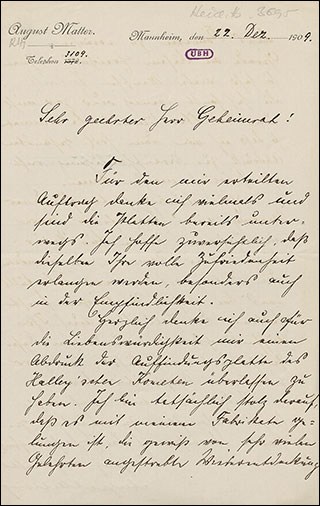 Heid. Hs. 3695
August Matter.
Mannheim, den 22. Dez. 1909.
UBH
Telephon 3109.
Sehr geehrter Herr Geheimrat!
Für den mir erteilten
Auftrag danke ich vielmals und
sind die Platten bereits unter-
wegs. Ich hoffe zuversichtlich, daß
dieselben Ihre volle Zufriedenheit
erlangen werden, besonders auch
in der Empfindlichkeit.
Herzlich danke ich auch für
die Liebenswürdigkeit mir einen
Abdruck der Auffindungsplatte des
Halley'schen Kometen überlassen zu
haben. Ich bin tatsächlich stolz darauf,
daß es mit meinem Fabrikate ge-
lungen ist, die gewiß von sehr vielen
Gelehrten angestrebte Wiederentdeckung